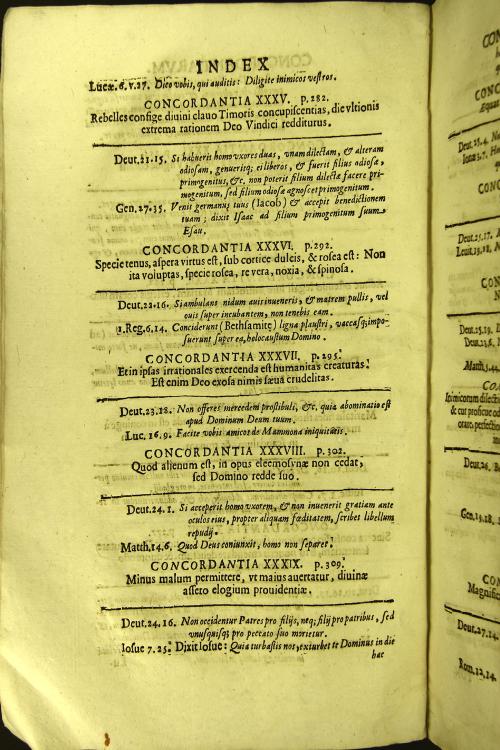 INDEX
Lucæ. 6. v. 27. Dico vobis, qui auditis: Diligite inimicos vestros.
CONCORDANTIA XXXV. p. 282.
Rebelles confige diuini clauo Timoris concupiscentias, die vltionis
extrema rationem Deo Vindici redditurus.
Deut. 21. 15. Si habuerit homo vxores duas, vnam dilectam, & alteram
odiosam, genueritq; ei liberos, & fuerit filius odiosæ,
primogenitus, &c, non poterit filium dilectæ facere pri-
mogenitum, sed filium odiosæ agnoscet primogenitum.
Gen. 27. 35. Venit germanus tuus (Iacob) & accepit benedictionem
tuam; dixit Isaac ad filium primogenitum suum
Esau.
CONCORDANTIA XXXVI. p. 292.
Specie tenus, aspera virtus est, sub cortice dulcis, & rosea est: Non
ita voluptas, specie rosea, re vera, noxia, & spinosa.
Deut. 22. 16. Si ambulans nidum auis inueneris, & matrem pullis, vel
ouis super incubantem, non tenebis eam.
1. Reg. 6. 14. Conciderunt (Bethsamitę) ligna plaustri, vaccasq; impo-
suerunt super ea, holocaustum Domino.
CONCORDANTIA XXXVII. p. 295.
Et in ipsas irrationales exercenda est humanitas creaturas:
Est enim Deo exosa nimis sæua crudelitas.
Deut. 23. 18. Non offeres mercedem prostibuli, &c, quia abominatio est
apud Dominum Deum tuum.
Luc. 16. 9. Facite vobis amicos de Mammona iniquitatis.
CONCORDANTIA XXXVIII. p. 302.
Quod alienum est, in opus eleemosynæ non cedat,
sed Domino redde suo.
Deut. 24. 1. Si acceperit homo vxorem, & non inuenerit gratiam ante
oculos eius, propter aliquam fœditatem, scribet libellum
repudij.
Matth. 14. 6. Quod Deus coniunxit, homo non separet.
CONCORDANTIA XXXIX. p. 309.
Minus malum permittere, vt maius auertatur, diuinæ
assero elogium prouidentiæ.
Deut. 24. 16. Non occidentur Patres pro filijs, neq; filij pro patribus, sed
vnusquisq; pro peccato suo morietur.
Iosue 7. 25. Dixit Iosue: Quia turbastis nos, exturbet te Dominus in die
hac